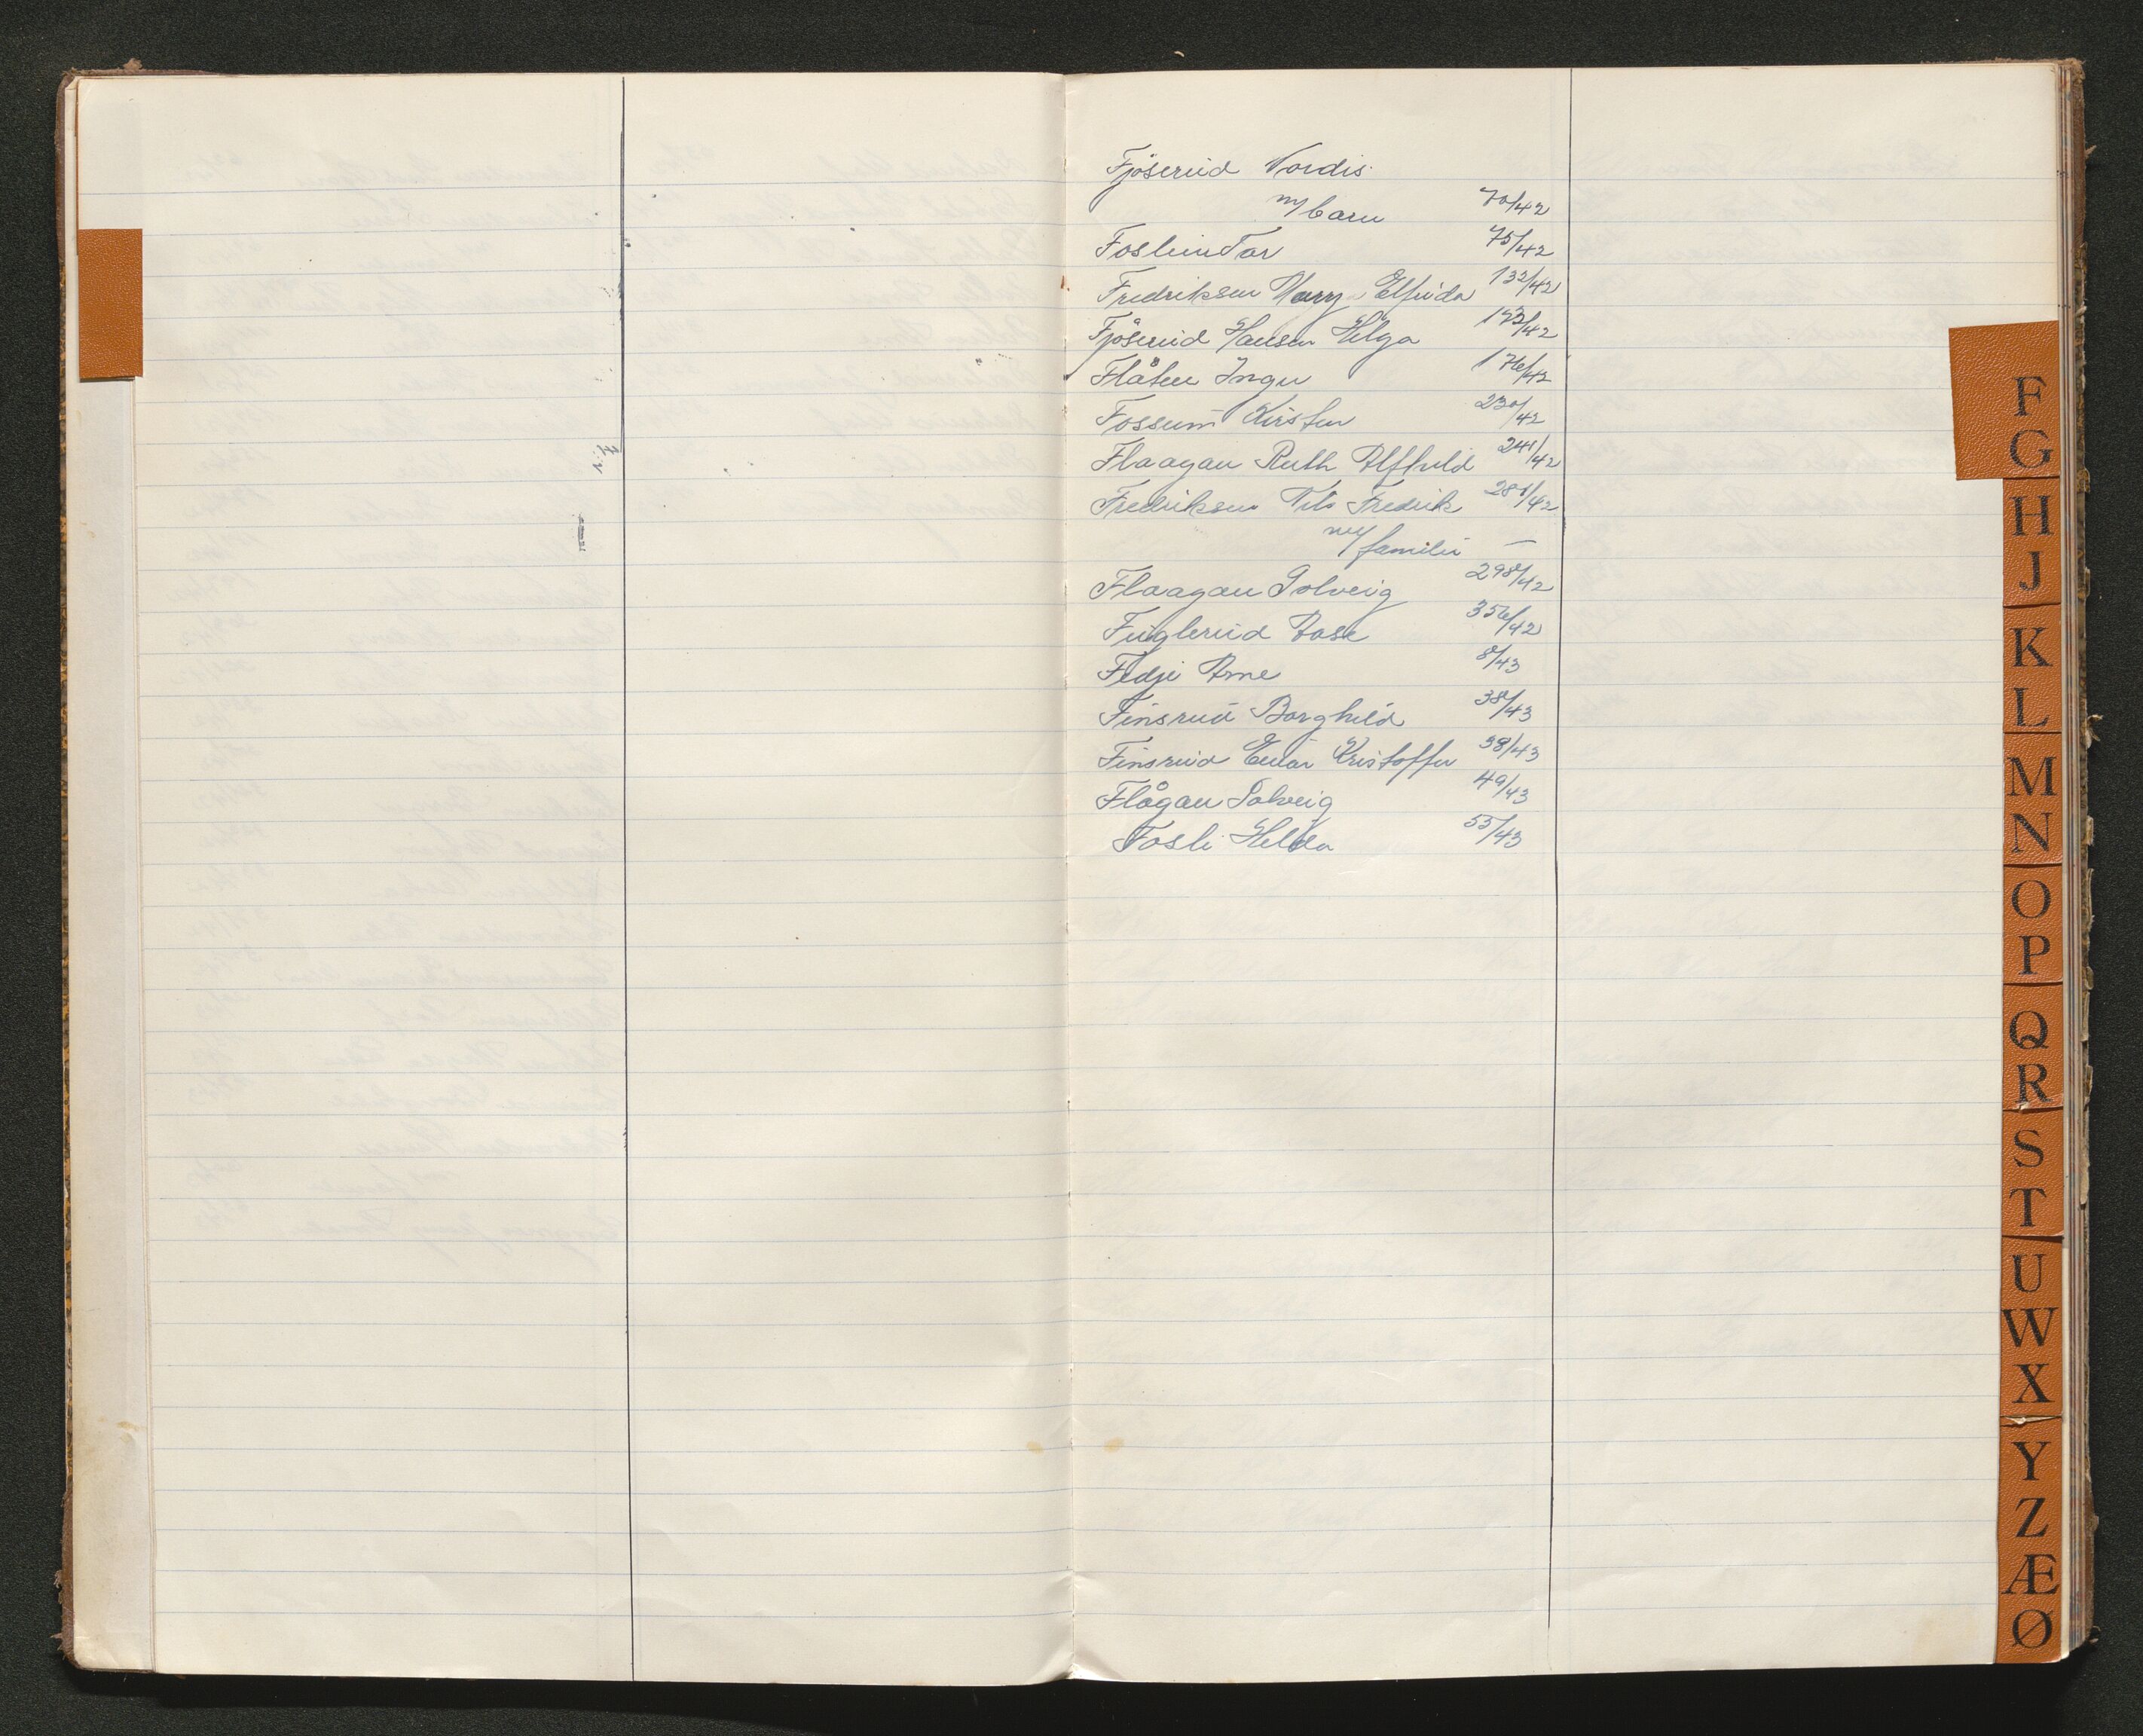 Fjöserud Nordis
m/barn 70/42
Foslien Tor 75/42
Fredriksen Harry Elfrida 132/42
Fjöserud Hansen Helga 173/42
Flåten Inger 176/42
Fossum Kirsten 230/42
Flaagan Ruth Alfhild 241/42
Fredriksen Nils Fredrik 281/42
m/familie —
Flaagan Solveig 298/42
Fuglerud Aase 356/42
Fedje Arne 8/43
Finsrud Borghild 38/43
Finsrud Einar Kristoffer 38/43
Flågan Solveig 49/43
Fosli Helda 55/43
F
G
H
J
K
L
M
N
O
P
Q
R
S
T
U
W
X
Y
Z
Æ
Ø